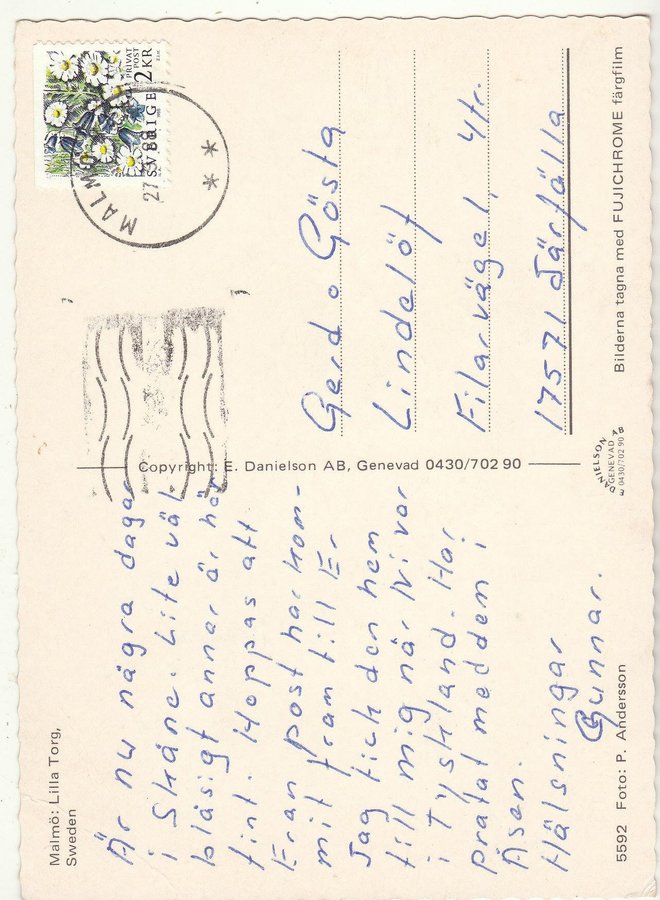 Malmö: Lilla Torg,
Sweden
Är nu några dagar
i Skåne. Lite väl
blåsigt annar är här
fint. Hoppas att
Eran post har kom-
mit fram till Er
Jag fick den hem
till mig när vi var
i Tyskland. Har
pratat med dem i
Åsen.
Hälsningar
Gunnar.
5592 Foto: P. Andersson
Copyright: E. Danielson AB, Genevad 0430/702 90
DANIELSON
GENEVAD
0430/702 90
MALMÖ
27
SVERIGE 2KR
PRIVAT
POST
Gerd o Gösta
Lindelöf
Filarvägel, 4tr.
17571 Järfälla
Bilderna tagna med FUJICHROME färgfilm